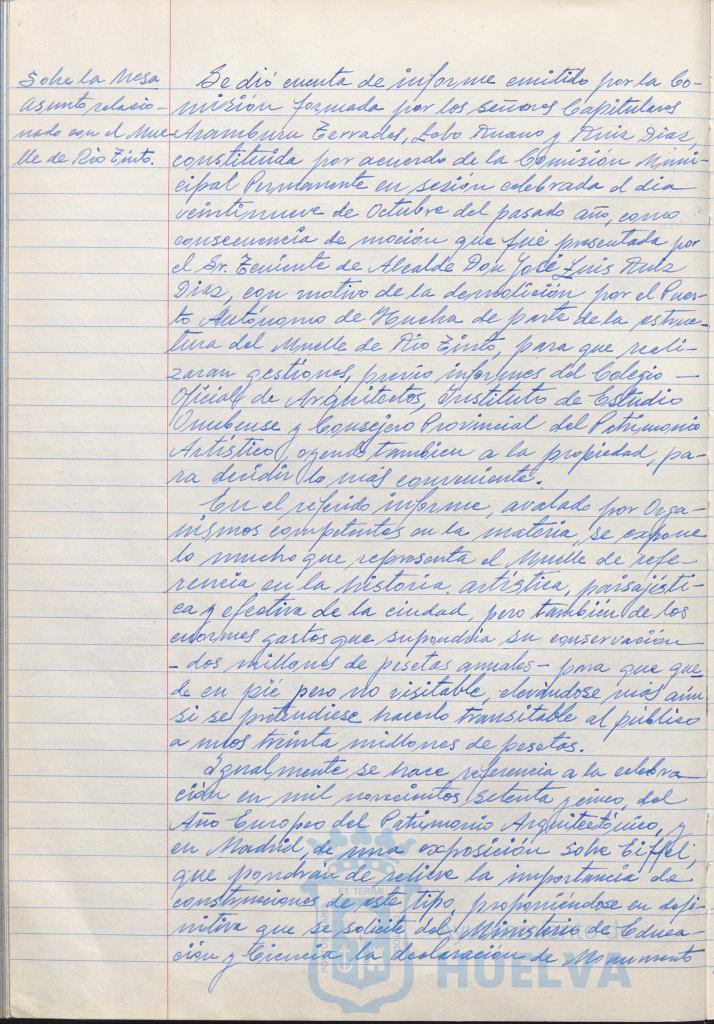 Sobre la Mesa
asunto relacio-
nado con el Mue-
lle de Rio Tinto.
Se dió cuenta de informe emitido por la Co-
misión formada por los señores Capitulares
Aramburu Terrades, Lobo Ruano y Ruiz Diaz,
constituida por acuerdo de la Comisión Muni-
cipal Permanente en sesión celebrada el dia
veintinueve de Octubre del pasado año, como
consecuencia de moción que fué presentada por
el Sr. Teniente de Alcalde Don José Luis Ruiz
Diaz, con motivo de la demolición por el Puer-
to Autónomo de Huelva de parte de la estruc-
tura del Muelle de Rio Tinto, para que reali-
zaran gestiones, previo informes del Colegio -
Oficial de Arquitectos, Instituto de Estudio
Onubense y Consejero Provincial del Patrimonio
Artístico, oyendo tambien a la propiedad, pa-
ra decidir lo más conveniente.
En el referido informe, avalado por Orga-
nismos competentes en la materia, se expone
lo mucho que representa el Muelle de refe-
rencia en la historia artística, paisajísti-
ca y efectiva de la ciudad, pero también de los
enormes gastos que supondria su conservación
- dos millones de pesetas anuales - para que que-
de en pié pero no visitable, elevándose más aún
si se pretendiese hacerlo transitable al público
a unos treinta millones de pesetas.
Igualmente se hace referencia a la celebra
ción en mil novecientos setenta y cinco, del
Año Europeo del Patrimonio Arquitectónico, y
en Madrid, de una exposición sobre Eiffel,
que pondran de relieve la importancia de
construcciones de este tipo, proponiéndose en defi-
nitiva que se solicite del Ministerio de Educa-
ción y Ciencia la declaración de Monumento
HUELVA